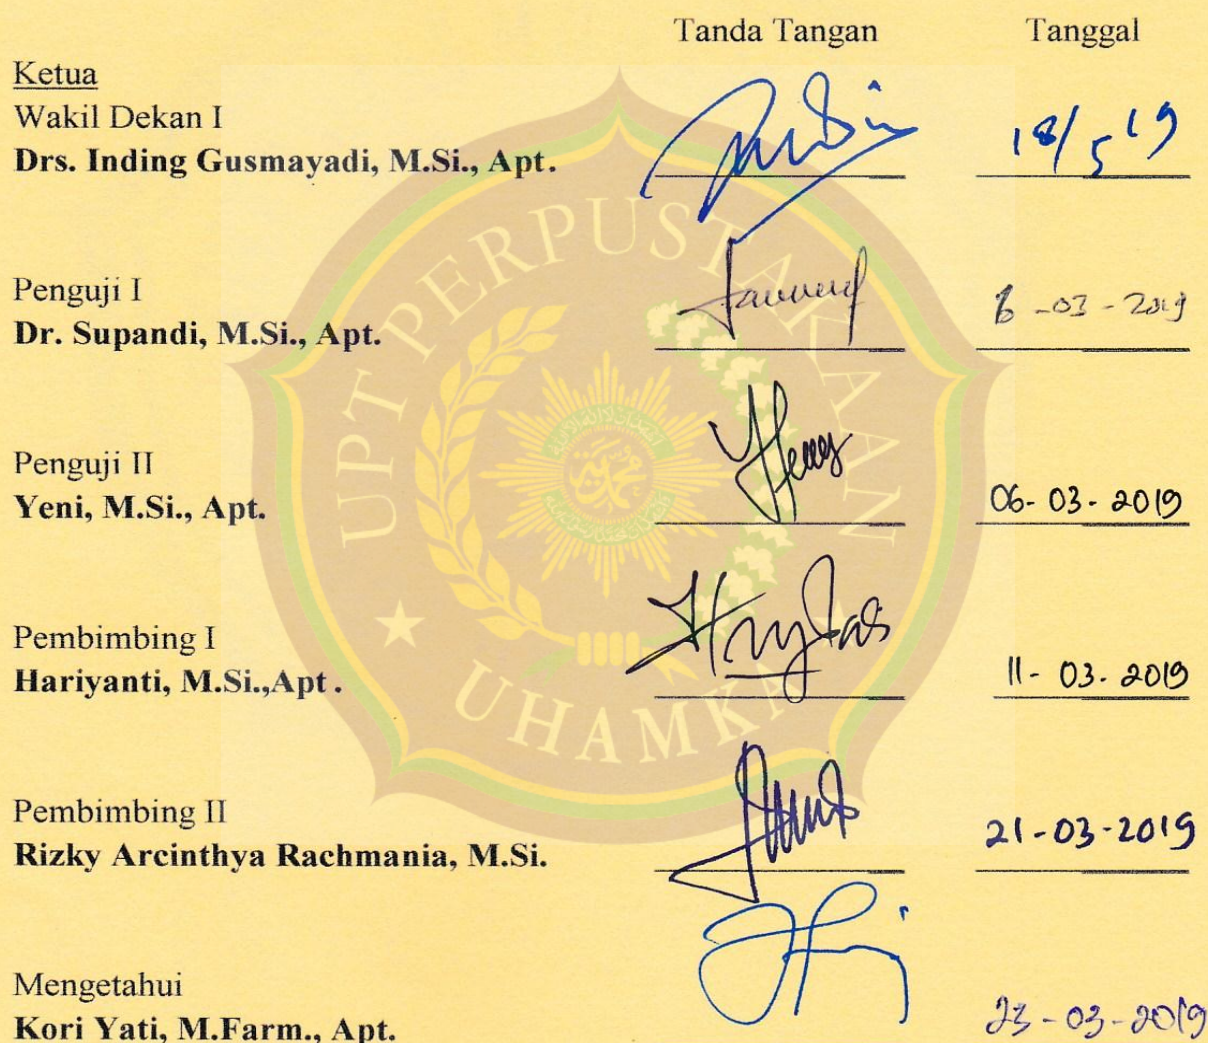 Tanda Tangan Tanggal
Ketua
Wakil Dekan I
Drs. Inding Gusmayadi, M.Si., Apt. 18/5 19
Penguji I
Dr. Supandi, M.Si., Apt. 6 -03 - 2019
Penguji II
Yeni, M.Si., Apt. 06- 03 - 2019
Pembimbing I
Hariyanti, M.Si.,Apt. 11- 03. 2019
Pembimbing II
Rizky Arcinthya Rachmania, M.Si. 21-03-2019
Mengetahui
Kori Yati, M.Farm., Apt. 23-03-2019
UPT PERPUSTAKAAN
UHAMKA